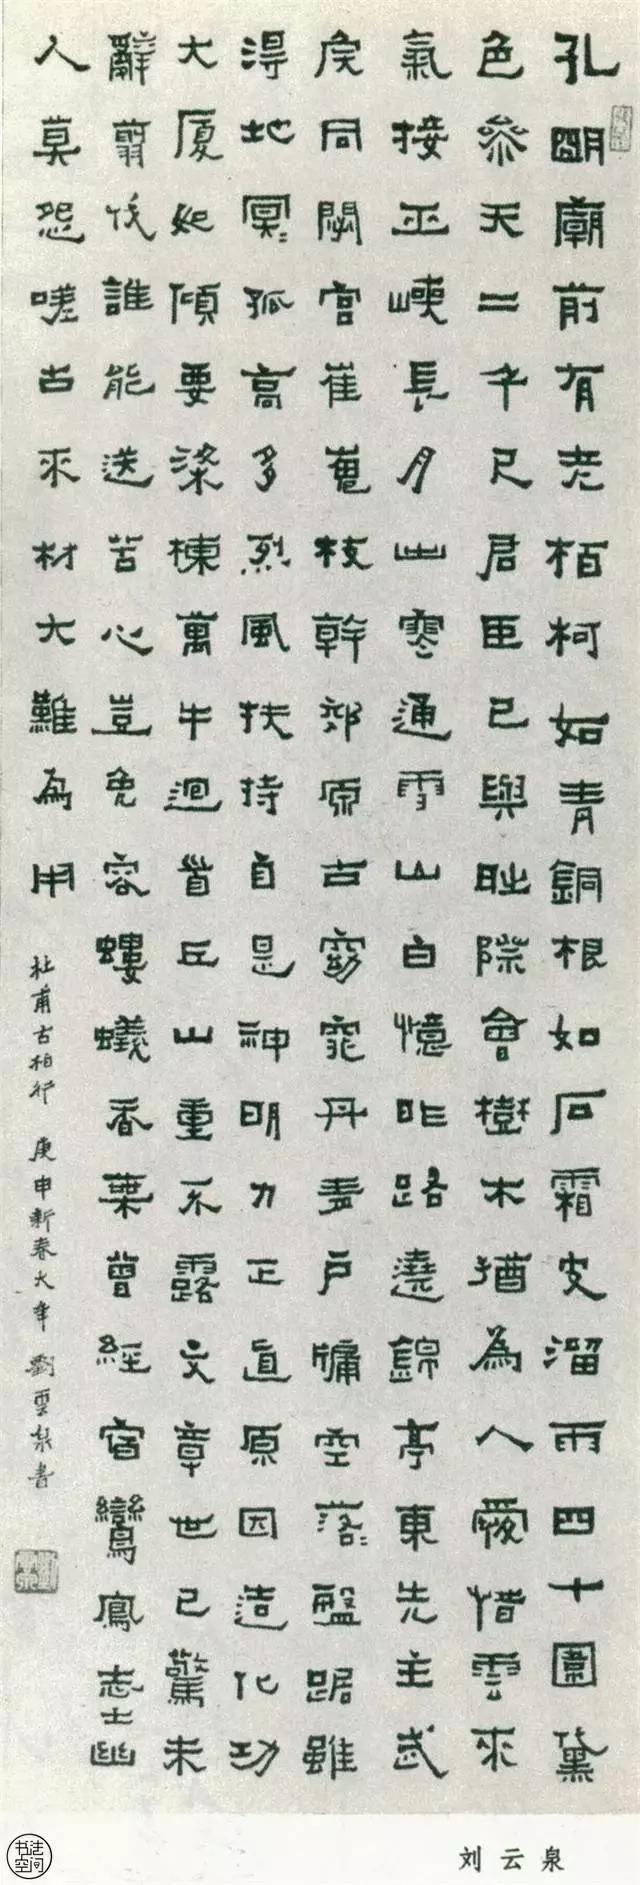 孔明廟前有老栢柯如青銅根如石霜皮溜雨四十圍黛
色參天二千尺君臣已與時際會樹木猶為人愛惜雲來
氣接巫峽長月出寒通雪山白憶昨路遶錦亭東先主武
矦同閟宮崔嵬枝幹郊原古窈窕丹青戶牖空落〻盤踞雖
得地冥〻孤高多烈風扶持自是神明力正直原因造化功
大廈如傾要梁棟萬牛迴首丘山重不露文章世已驚未
辭翦伐誰能送苦心豈免容螻蟻香葉曾經宿鸞鳳志士幽
人莫怨嗟古來材大難為用
杜甫古柏行 庚申新春大年 劉雲泉書
刘云泉
书法空间